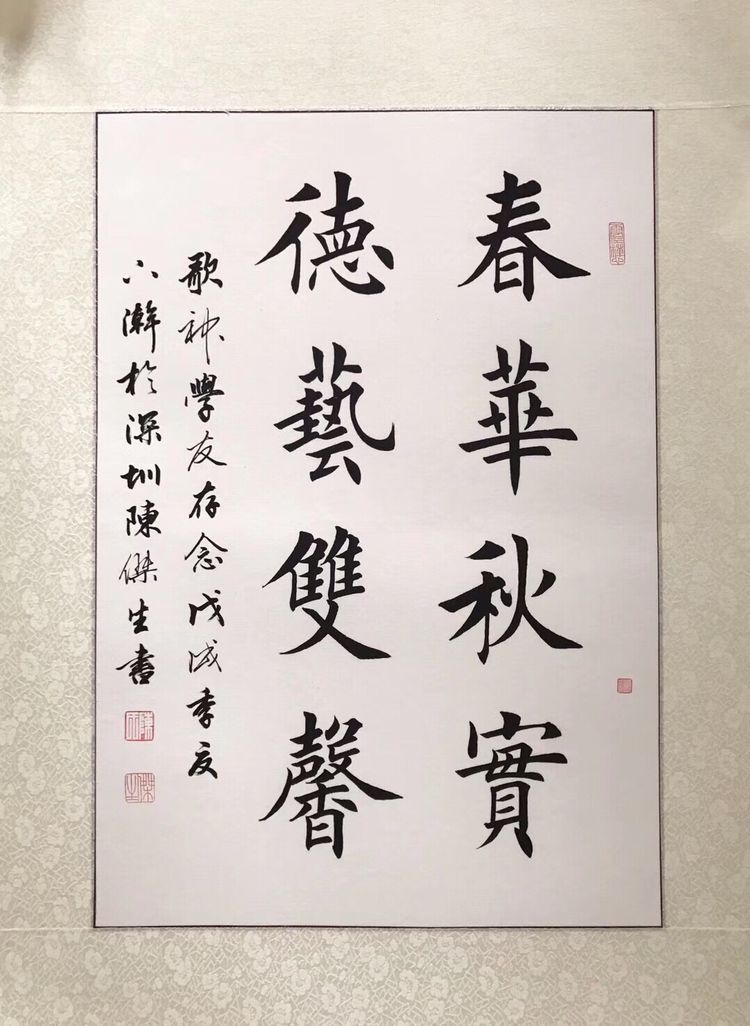 春華秋實
德藝雙馨
歌神學友存念戊戌季夏
八瀚於深圳陳傑生書